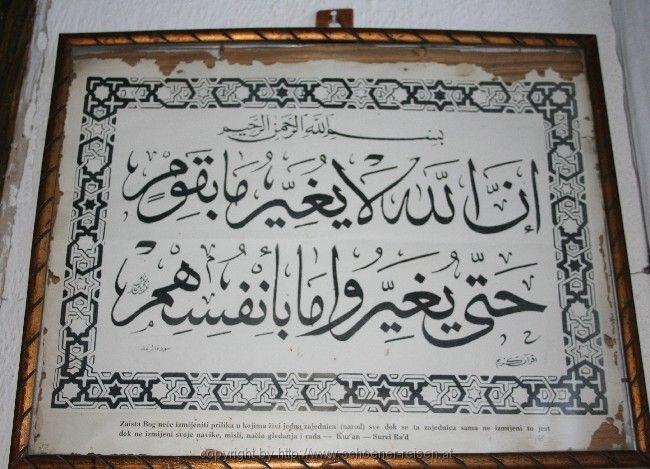 بسم الله الرحمن الرحيم
إنّ الله لا يغيّر ما بقوم
حتّى يغيّروا ما بأنفسهم
سورة الرعد
القرآن الكريم
Zaista Bog neće izmijeniti prilika u kojima živi jedna zajednica (narod) sve dok se ta zajednica sama ne izmijeni to jest
dok ne izmijeni svoje navike, misli, način gledanja i rada — Kur'an — Surei Ra'd
copyright by http://www.schoener-reisen.at